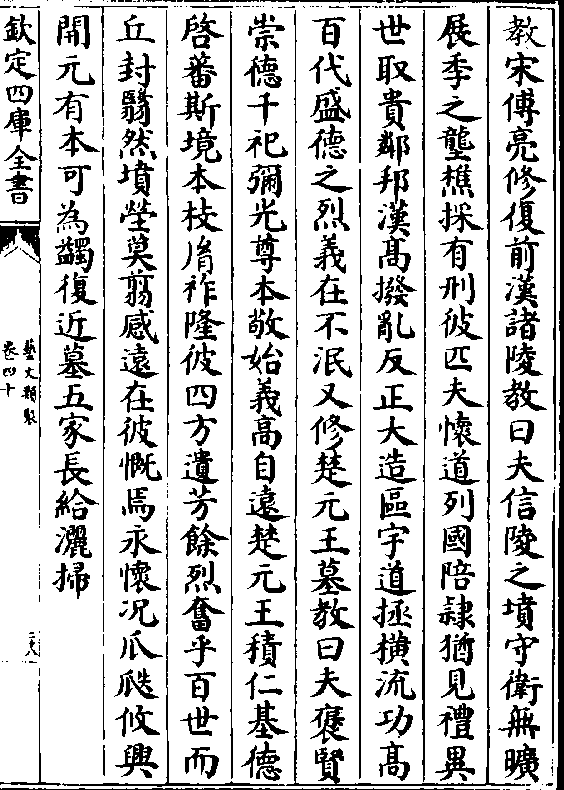 教宋傅亮修復前漢諸陵教曰夫信陵之墳守衛無曠
展季之壟樵採有刑彼匹夫懷道列國陪隷猶見禮異
世取貴鄰邦漢高撥亂反正大造區宇道拯横流功高
百代盛德之烈義在不泯又修楚元王墓教曰夫褒賢
崇德千祀彌光尊本敬始義高自遠楚元王積仁基德
啓蕃斯境本枝胤祚隆彼四方遺芳餘烈奮乎百世而
丘封翳然墳塋莫翦感遠在彼慨焉永懷况瓜瓞攸興
開元有本可為蠲復近墓五家長給灑掃
欽定四庫全書
藝文類聚
卷四十